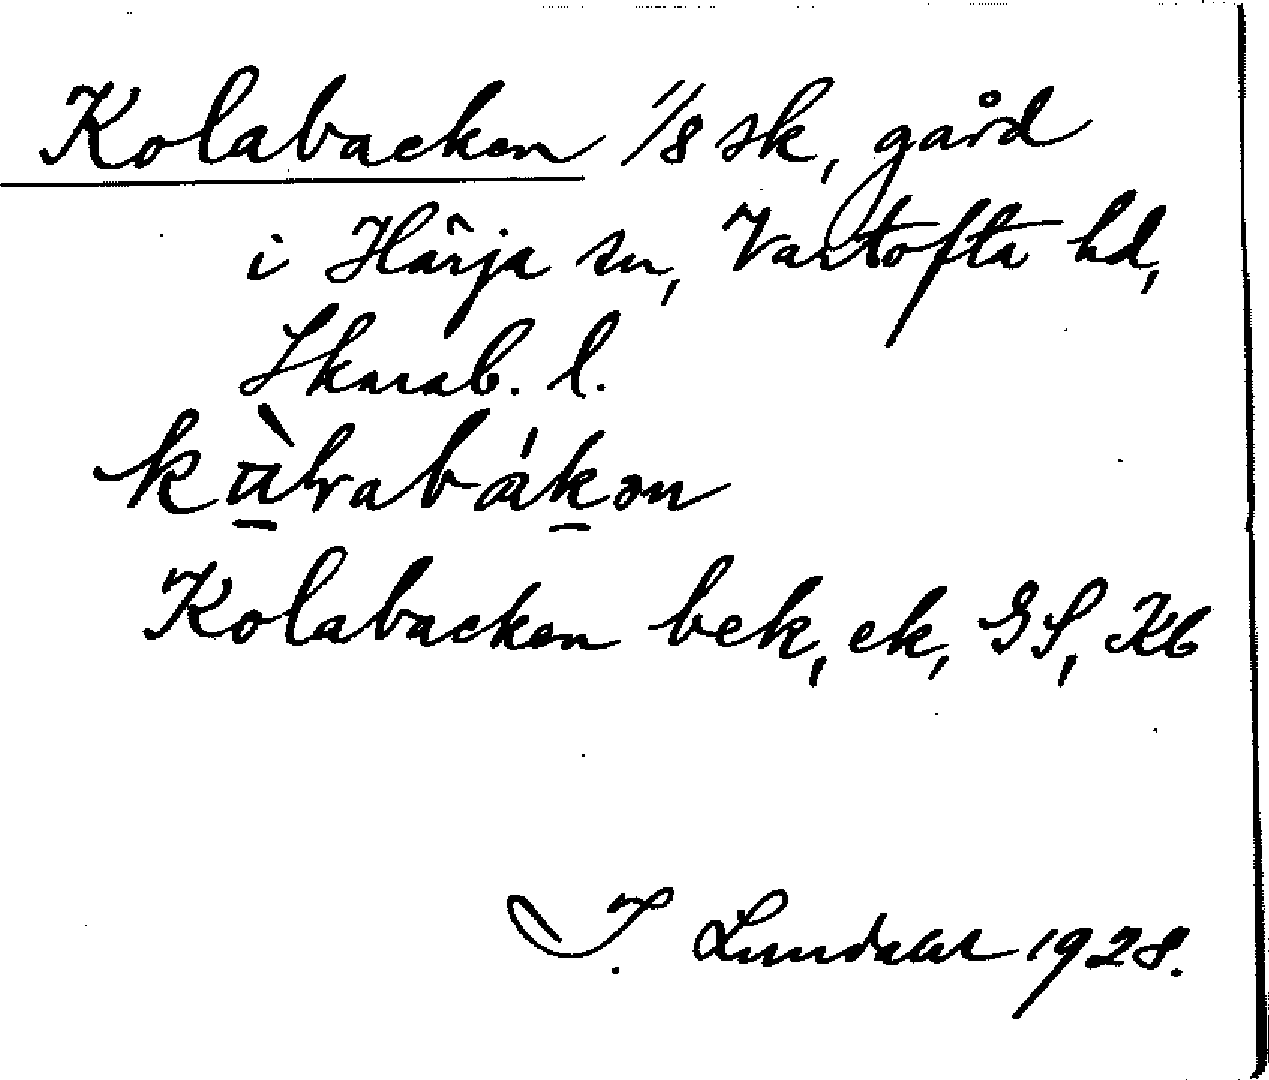 Kolabacken 1/8 sk, gård
i Härja sn, Vartofta hd,
Skarab. l.
Kolabacken bek, ek, GS, Kb
J. Lundahl 1928.